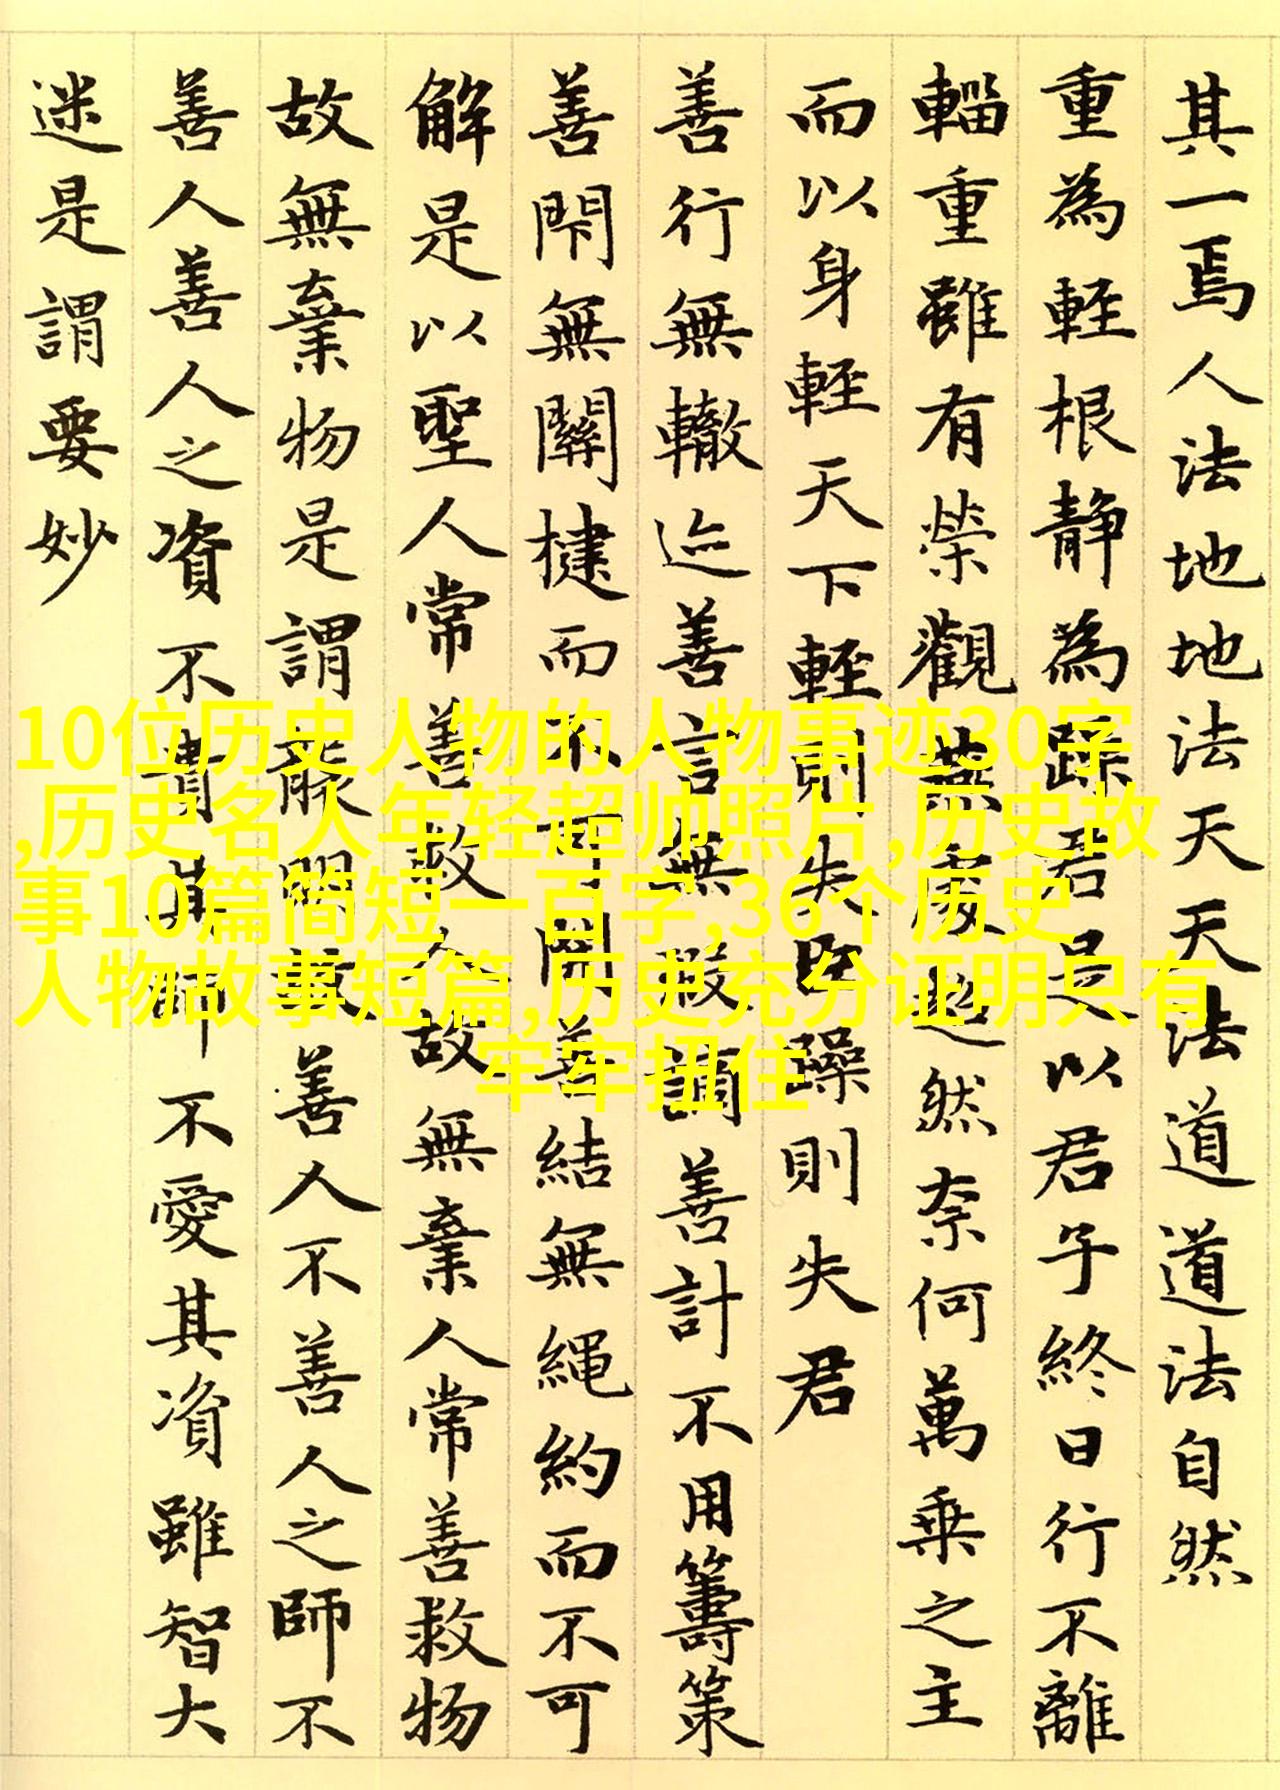 其一焉人法地地法天天法道道法自然
重為輕根靜為躁君是以君子終日行不離
輜重雖有榮觀燕處超然柰何萬乘之主
而以身輕天下輕則失臣躁則失君
善行無轍迹善言無瑕謫善計不用籌策
善閇無關楗而不可開善結無繩約而不可
解是以聖人常善救人故無棄人常善救物
故無棄物是謂襲明故善人不善人之師不
善人善人之資不貴其師不愛其資雖智大
迷是謂要妙
10位历史人物的人物事迹30字
,历史名人年轻超帅照片,历史故
事10篇简短一百字,36个历史
人物故事短篇,历史充分证明只有
牢牢扭住